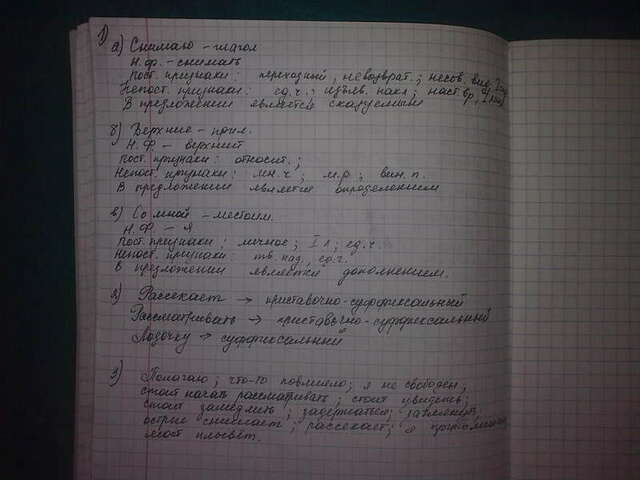 1)
а) Снимаю - глагол
Н.ф. - снимать
Пост. признаки: переходный, невозврат.; несов. вид, I спр.
Непост. признаки: ед.ч.; изъяв. накл; наст. вр., I лицо
В предложении является сказуемым
б) Верхние - прил.
Н.Ф. - верхний
Пост. признаки: относит.;
Непост. признаки: мн.ч; м.р; вин. п.
В предложении является определением
в) Со мной - местоим.
Н.Ф. - я
Пост. признаки: личное; I л; ед.ч.
Непост. признаки: тв. пад., ед.ч.
В предложении является дополнением.
2) Рассекает → приставочно-суффиксальный
Рассматривать → приставочно-суффиксальный
Лодочку → суффиксальный
3) Полагаю; что-то повлияло; я не свободен;
стоит начать рассматривать; стоит увидеть;
стоит замедлить; задержаться;
острие снимает; рассекает; о
мост плывёт.